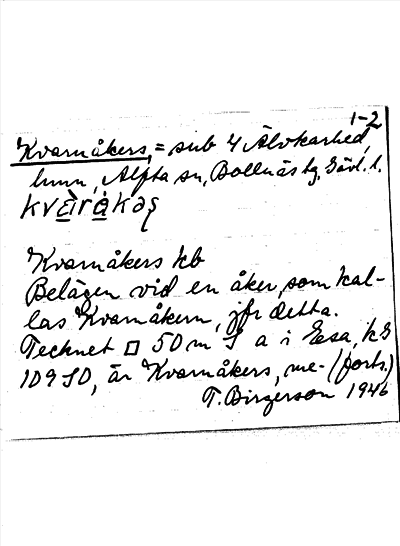 1-2
Kvarnåkers, = sub 4 Älvkarhed,
hmn, Alfta sn, Bollnäs tg, Gävl. l.
kvàrå̀kəʂ
Kvarnåkers kb
Belägen vid en åker, som kal-
las Kvarnåkern, jfr detta.
Tecknet □ 50 m S a i Esa, kS
109 SO, är Kvarnåkers, me- (forts.)
T. Birgerson 1946